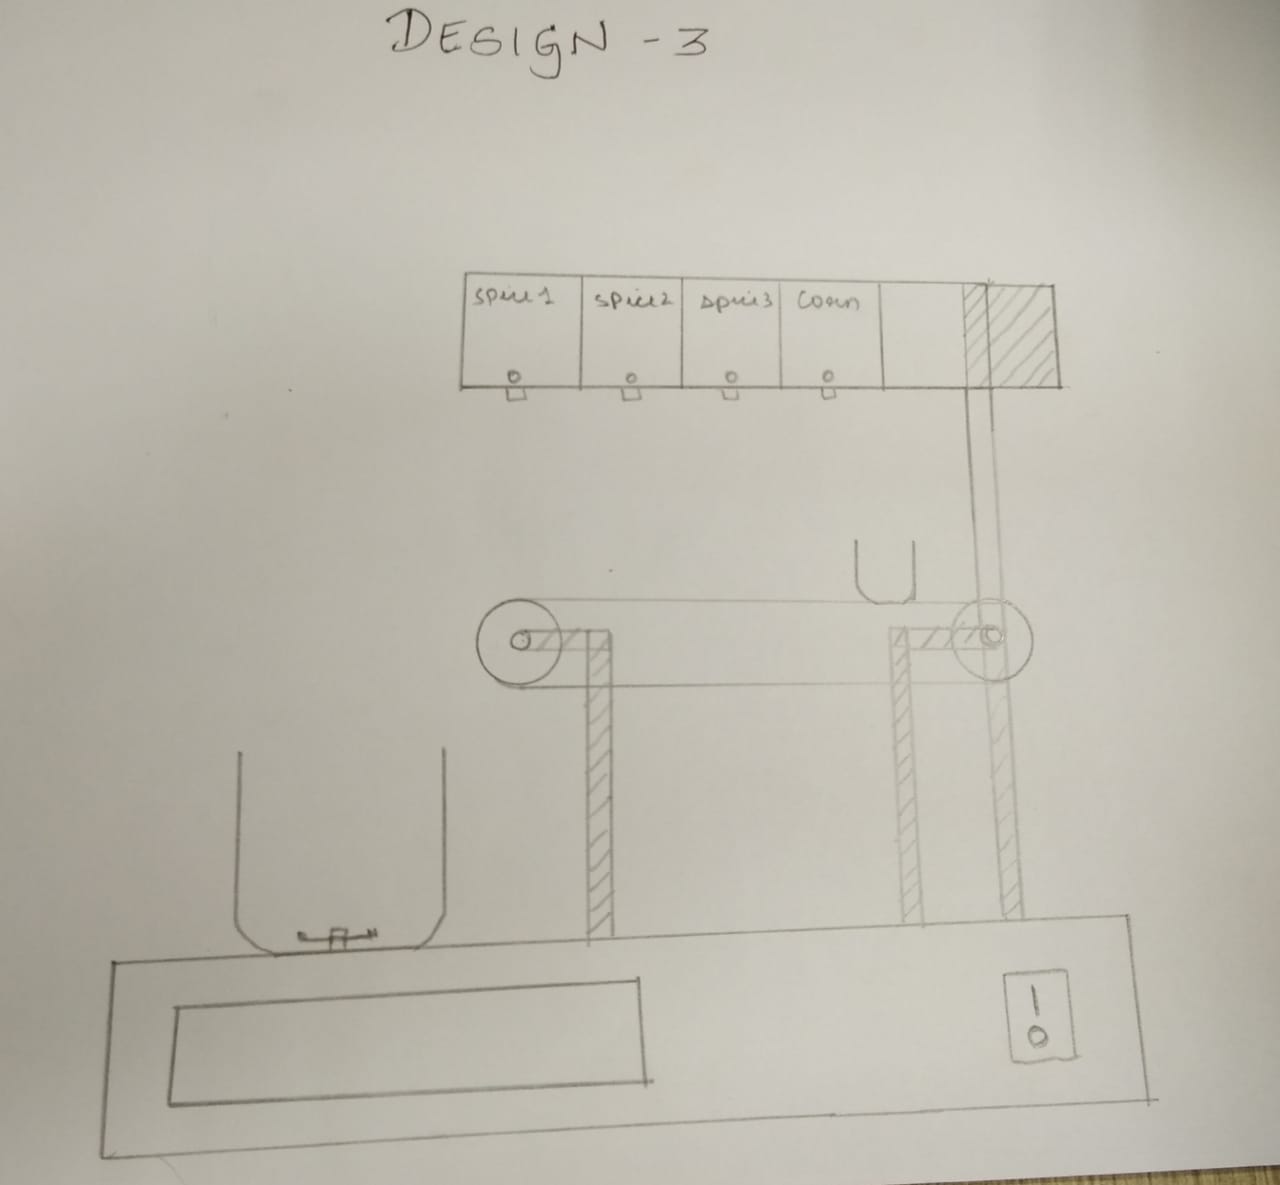 DESIGN - 3
spice1 spice2 spice3 Corn
I
O